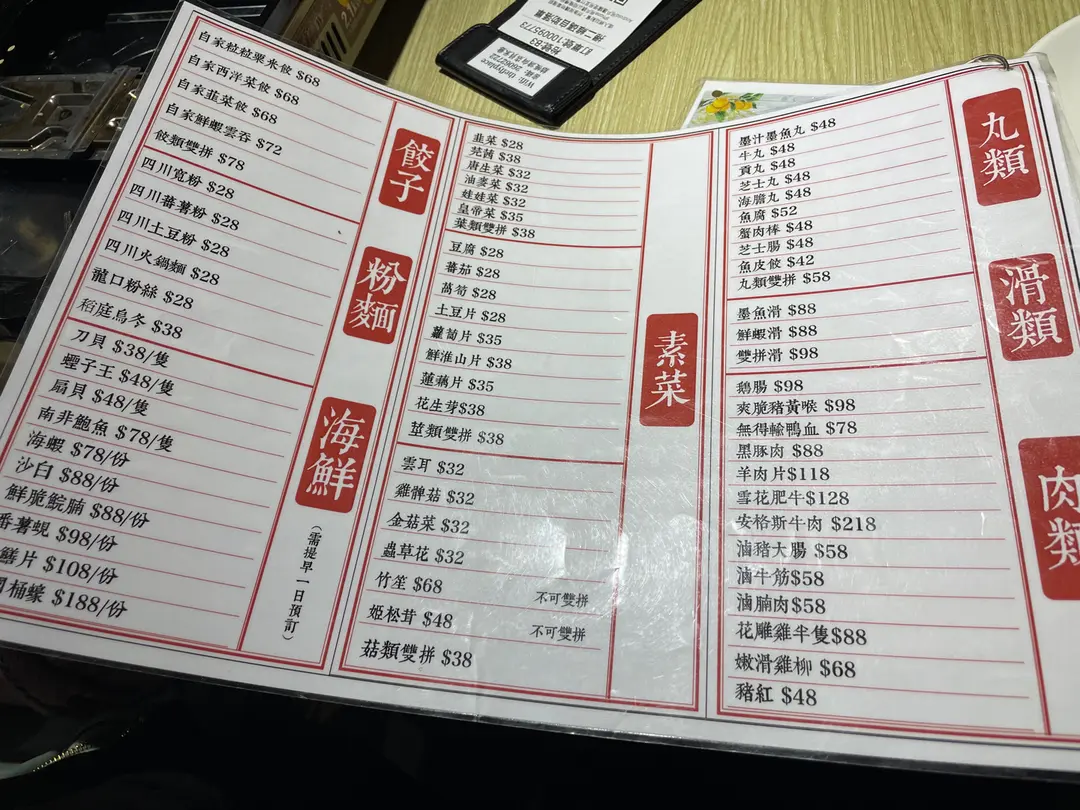 丸類
墨汁墨魚丸 $48
牛丸 $48
貢丸 $48
芝士丸 $48
海膽丸 $48
魚腐 $52
蟹肉棒 $48
芝士腸 $48
魚皮餃 $42
丸類雙拼 $58
滑類
墨魚滑 $88
鮮蝦滑 $88
雙拼滑 $98
肉類
鵝腸 $98
爽脆豬黃喉 $98
無得輸鴨血 $78
黑豚肉 $88
羊肉片$118
雪花肥牛$128
安格斯牛肉 $218
滷豬大腸 $58
滷牛筋$58
滷腩肉$58
花雕雞半隻$88
嫩滑雞柳 $68
豬紅 $48
素菜
韭菜 $28
芫茜 $38
唐生菜 $32
油麥菜 $32
娃娃菜 $32
皇帝菜 $35
葉類雙拼 $38
豆腐 $28
蕃茄 $28
萵筍 $28
土豆片 $28
蘿蔔片 $35
鮮淮山片 $38
蓮藕片 $35
花生芽$38
莖類雙拼 $38
雲耳 $32
雞髀菇 $32
金菇菜 $32
蟲草花 $32
竹笙 $68 不可雙拼
姬松茸 $48 不可雙拼
菇類雙拼 $38
餃子
自家粒粒粟米餃 $68
自家西洋菜餃 $68
自家韭菜餃 $68
自家鮮蝦雲吞 $72
餃類雙拼 $78
粉麵
四川寬粉 $28
四川蕃薯粉 $28
四川土豆粉 $28
四川火鍋麵 $28
龍口粉絲 $28
稻庭烏冬 $38
海鮮
(需提早一日預訂)
刀貝 $38/隻
蟶子王 $48/隻
扇貝 $48/隻
南非鮑魚 $78/隻
海蝦 $78/份
沙白 $88/份
鮮脆鯇腩 $88/份
番薯蜆 $98/份
鱔片 $108/份
桶蠔 $188/份
掃二維碼自助落單
訂單號:10095773
檯號:B3
26086728
Wifi: theflyplace